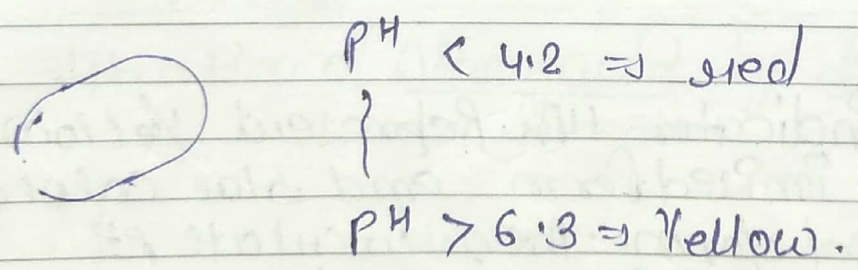 pH < 4.2 ⇒ red
pH > 6.3 ⇒ Yellow.